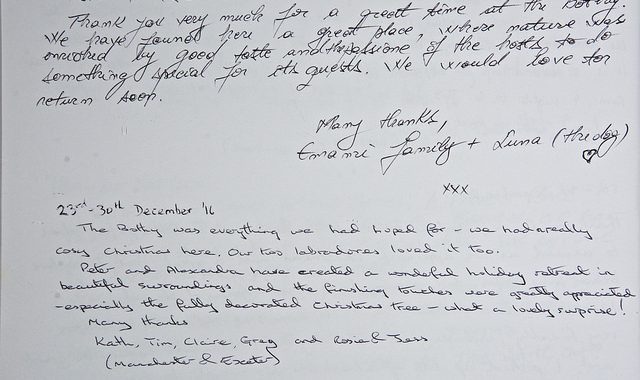 Thank you very much for a great time at the Bothy.
We have found here a great place, where nature was
enriched by good taste and of the hosts, to do
something special for its guests. We would love for
return soon.
Many thanks,
family + Luna (the dog)
xxx
23rd - 30th December '16
The Bothy was everything we had hoped for - we had a really
cosy Christmas here. Our two labradores loved it too.
Peter and Alexandra have created a wonderful holiday retreat in
beautiful surroundings and the finishing touches were greatly appreciated
- especially the fully decorated Christmas tree - what a lovely surprise!
Many thanks
Kath, Tim, Claire, Greg and Rosie & Jess
(Manchester & Exeter)